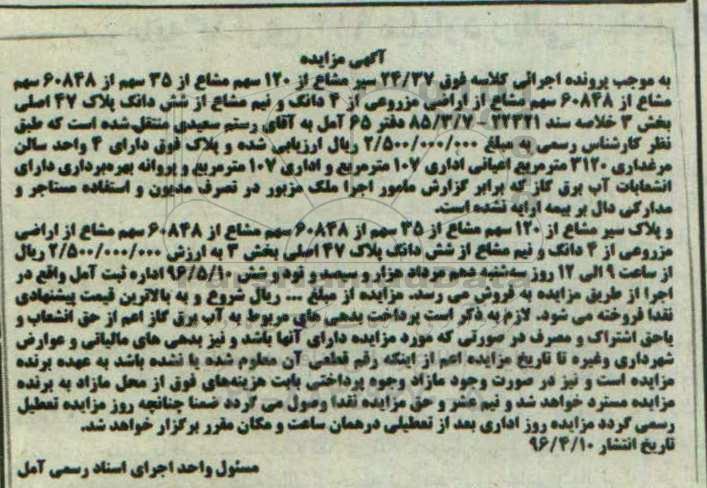 آگهی مزایده
به موجب پرونده اجرائی کلاسه فوق ۲۴/۲۷ سیر مشاع از ۱۲۰ سهم مشاع از ۳۵ سهم از ۶۰۸۴۸ سهم
مشاع از ۶۰۸۴۸ سهم مشاع از اراضی مزروعی از ۴ دانگ و نیم مشاع از شش دانگ پلاک ۴۷ اصلی
بخش ۳ خلاصه سند ۲۲۳۲۱-۸۵/۳/۷ دفتر ۶۵ آمل به آقای رستم سعیدی منتقل شده است که طبق
نظر کارشناس رسمی به مبلغ ۲/۵۰۰/۰۰۰/۰۰۰ ریال ارزیابی شده و پلاک فوق دارای ۴ واحد سالن
مرغداری ۳۱۲۰ مترمربع اعیانی اداری ۱۰۷ مترمربع و اداری ۱۰۷ مترمربع و پروانه بهره‌برداری دارای
انشعابات آب برق گاز که برابر گزارش مامور اجرا ملک مزبور در تصرف مدیون و استفاده مستاجر و
مدارکی دال بر بیمه ارایه نشده است.
و پلاک سیر مشاع از ۱۲۰ سهم مشاع از ۳۵ سهم از ۶۰۸۴۸ سهم مشاع از ۶۰۸۴۸ سهم مشاع از اراضی
مزروعی از ۴ دانگ و نیم مشاع از شش دانگ پلاک ۴۷ اصلی بخش ۳ به ارزش ۲/۵۰۰/۰۰۰/۰۰۰ ریال
از ساعت ۹ الی ۱۲ روز سه‌شنبه دهم مرداد هزار و سیصد و نود و شش ۹۶/۵/۱۰ اداره ثبت آمل واقع در
اجرا از طریق مزایده به فروش می رسد. مزایده از مبلغ ... ریال شروع و به بالاترین قیمت پیشنهادی
نقدا فروخته می شود. لازم به ذکر است پرداخت بدهی های مربوط به آب برق گاز اعم از حق انشعاب و
یاحق اشتراک و مصرف در صورتی که مورد مزایده دارای آنها باشد و نیز بدهی های مالیاتی و عوارض
شهرداری وغیره تا تاریخ مزایده اعم از اینکه رقم قطعی آن معلوم شده یا نشده باشد به عهده برنده
مزایده است و نیز در صورت وجود مازاد وجوه پرداختی بابت هزینه‌های فوق از محل مازاد به برنده
مزایده مسترد خواهد شد و نیم عشر و حق مزایده نقدا وصول می گردد ضمنا چنانچه روز مزایده تعطیل
رسمی گردد مزایده روز اداری بعد از تعطیلی درهمان ساعت و مکان مقرر برگزار خواهد شد.
تاریخ انتشار ۹۶/۴/۱۰
مسئول واحد اجرای اسناد رسمی آمل